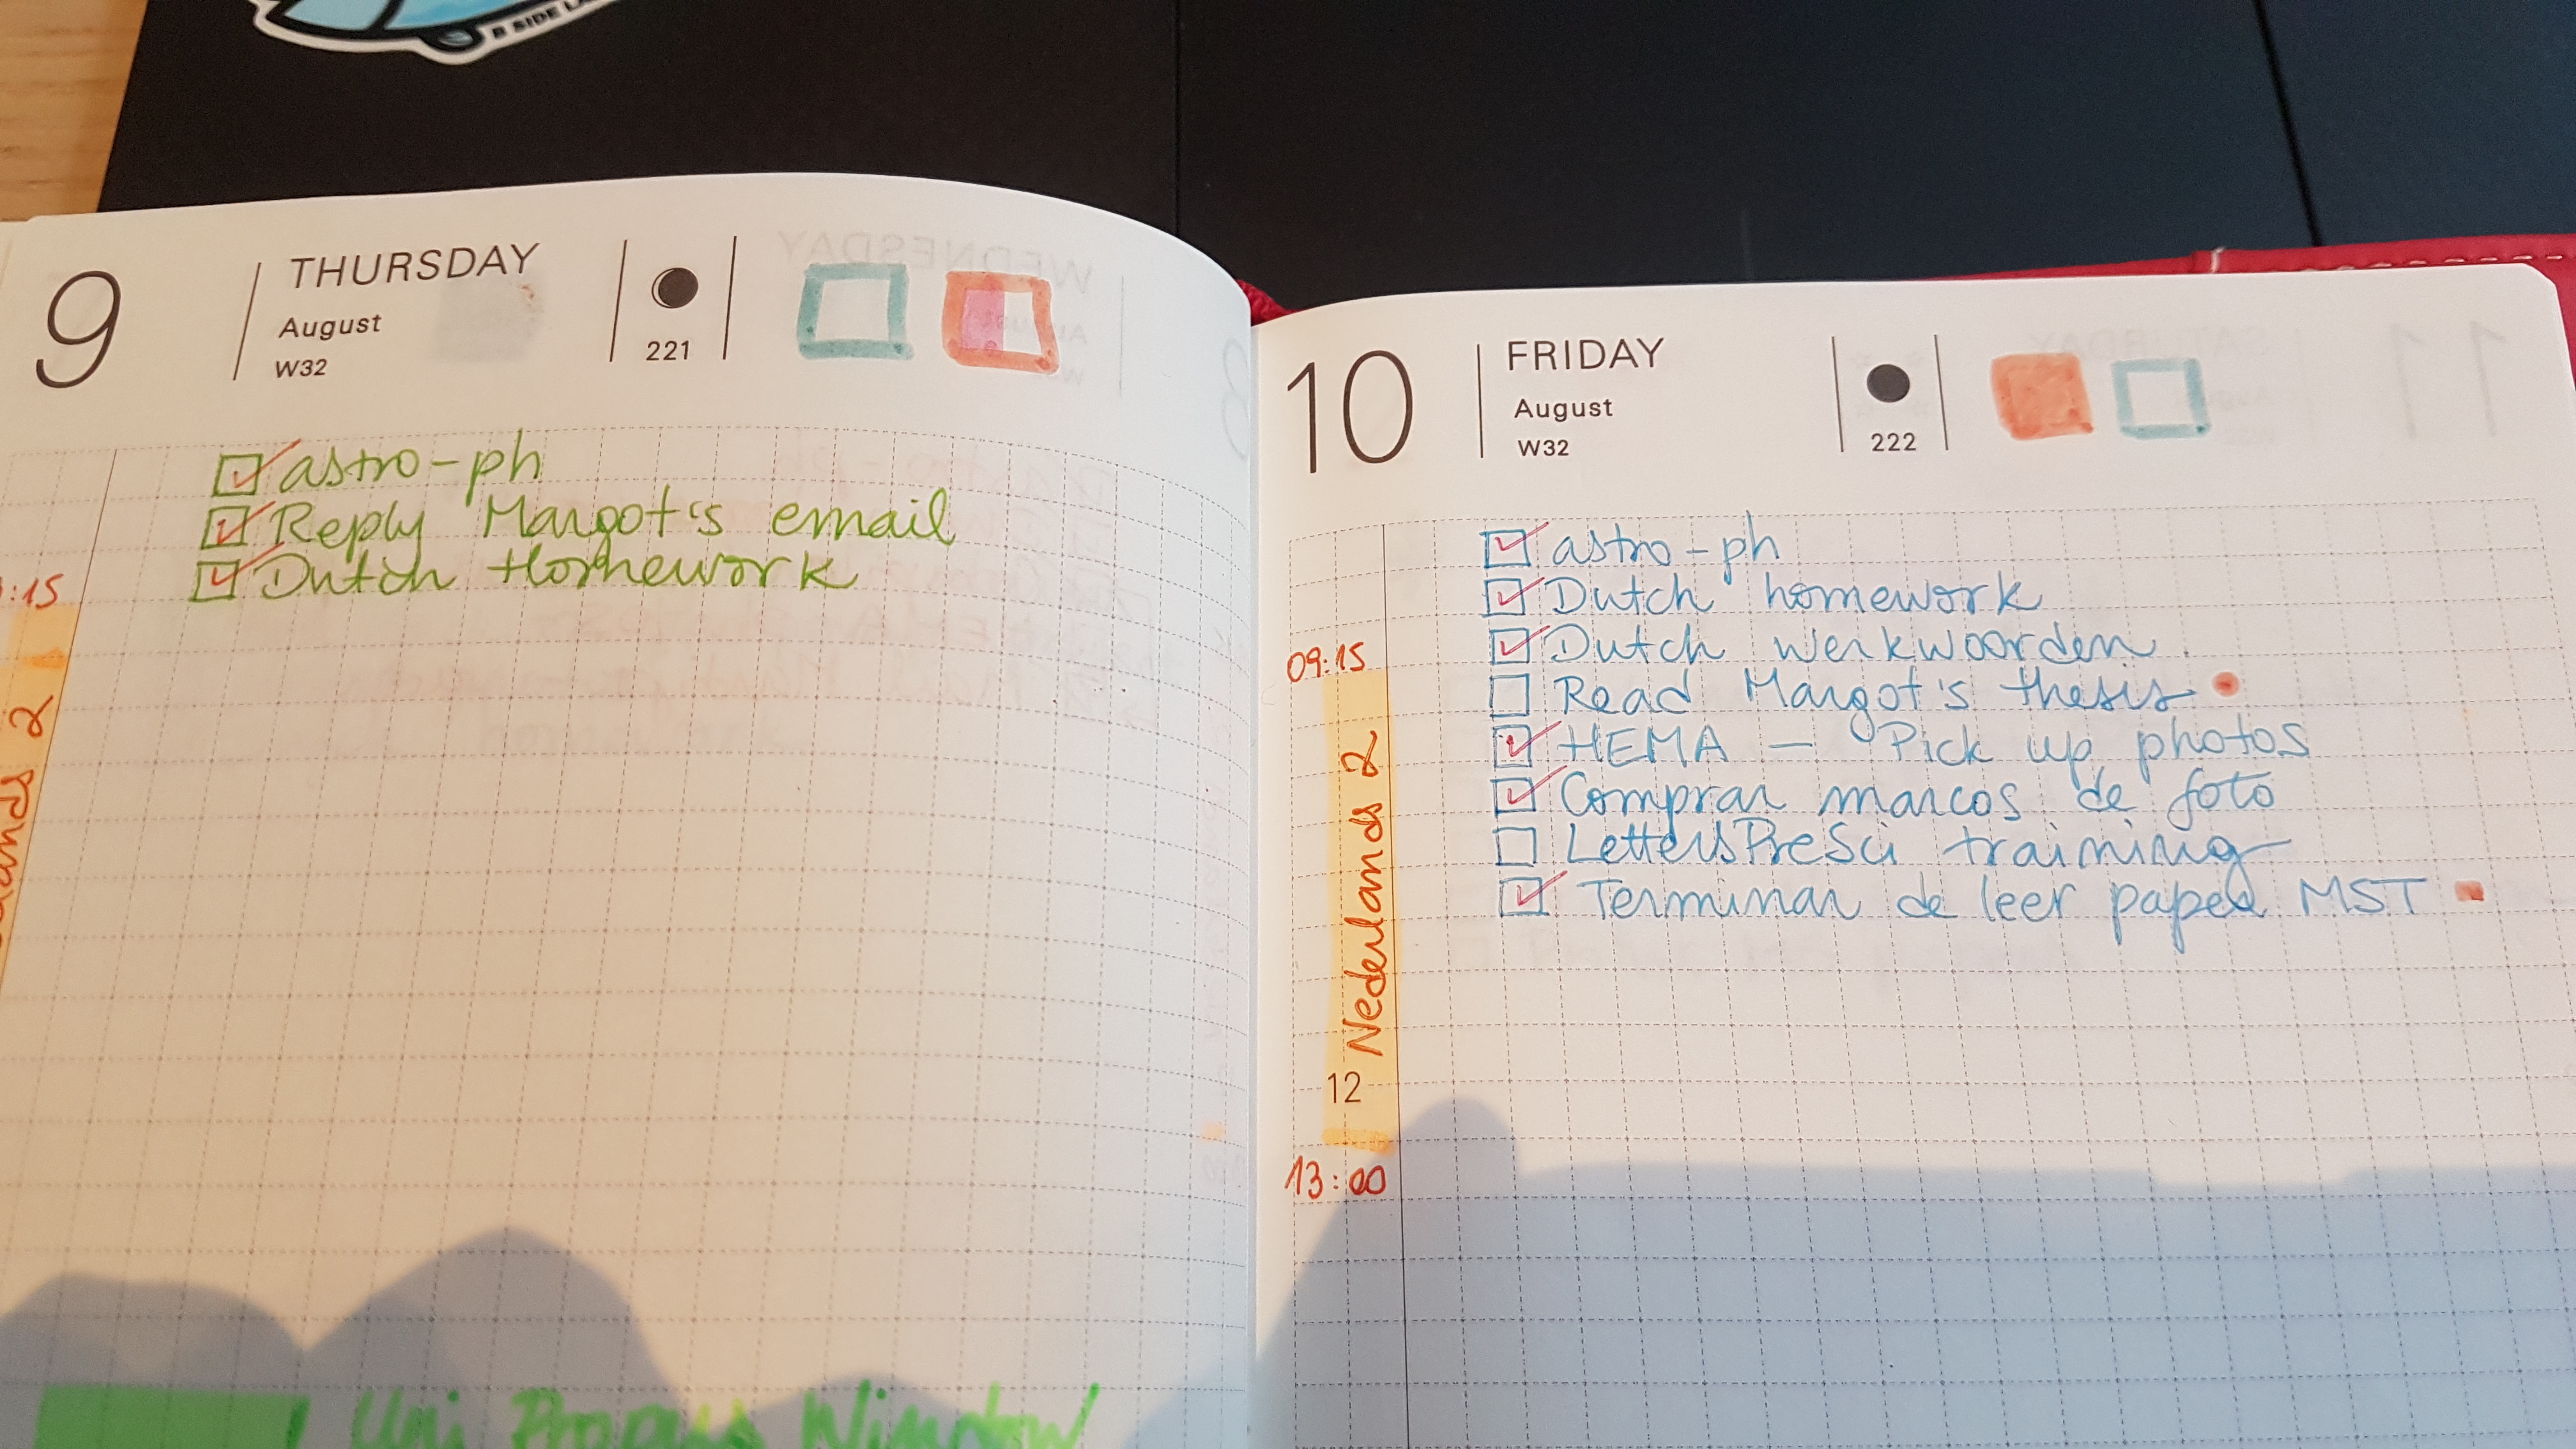 B SIDE LA
9
THURSDAY
August
W32
221
astro-ph
Reply Margot's email
Dutch Homework
:15
ands 2
Window
10
FRIDAY
August
W32
222
astro-ph
Dutch homework
Dutch werkwoorden
09:15
Read Margot's thesis
HEMA — Pick up photos
Comprar marcos de foto
LettersPreSci training
Terminar de leer paper MST
Nederlands 2
12
13:00